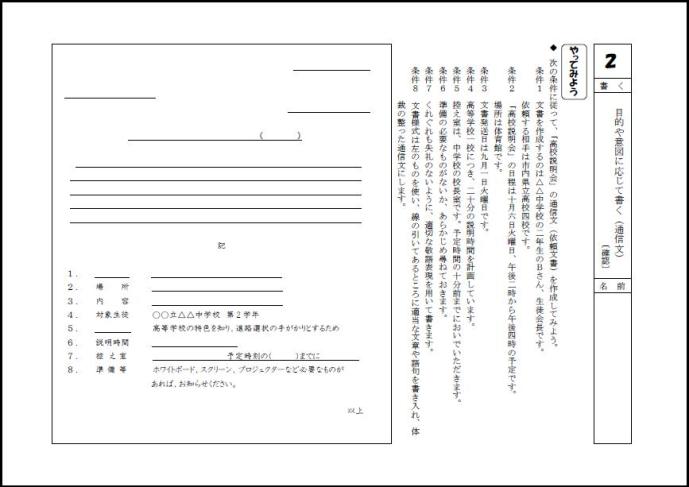 2
書く
目的や意図に応じて書く（通信文）
〔確認〕
名前
やってみよう
◆ 次の条件に従って、「高校説明会」の通信文（依頼文書）を作成してみよう。
条件１ 文書を作成するのは△△中学校の二年生のＢさん、生徒会長です。
依頼する相手は市内県立高校四校です。
条件２ 「高校説明会」の日程は十月六日火曜日、午後二時から午後四時の予定です。
場所は体育館です。
条件３ 文書発送日は九月一日火曜日です。
条件４ 高等学校一校につき、二十分の説明時間を計画しています。
条件５ 控え室は、中学校の校長室です。予定時間の十分前までにおいでいただきます。
条件６ 準備の必要なものがないか、あらかじめ尋ねておきます。
条件７ くれぐれも失礼のないように、適切な敬語表現を用いて書きます。
条件８ 文書様式は左のものを使い、線の引いてあるところに適当な文章や語句を書き入れ、体
裁の整った通信文にします。
（ ）
記
１．
２． 場 所
３． 内 容
４． 対象生徒 〇〇立△△中学校 第２学年
５． 高等学校の特色を知り、進路選択の手がかりとするため
６． 説明時間
７． 控え室 予定時刻の（ ）までに
８． 準備等 ホワイトボード、スクリーン、プロジェクターなど必要なものが
あれば、お知らせください。
以上